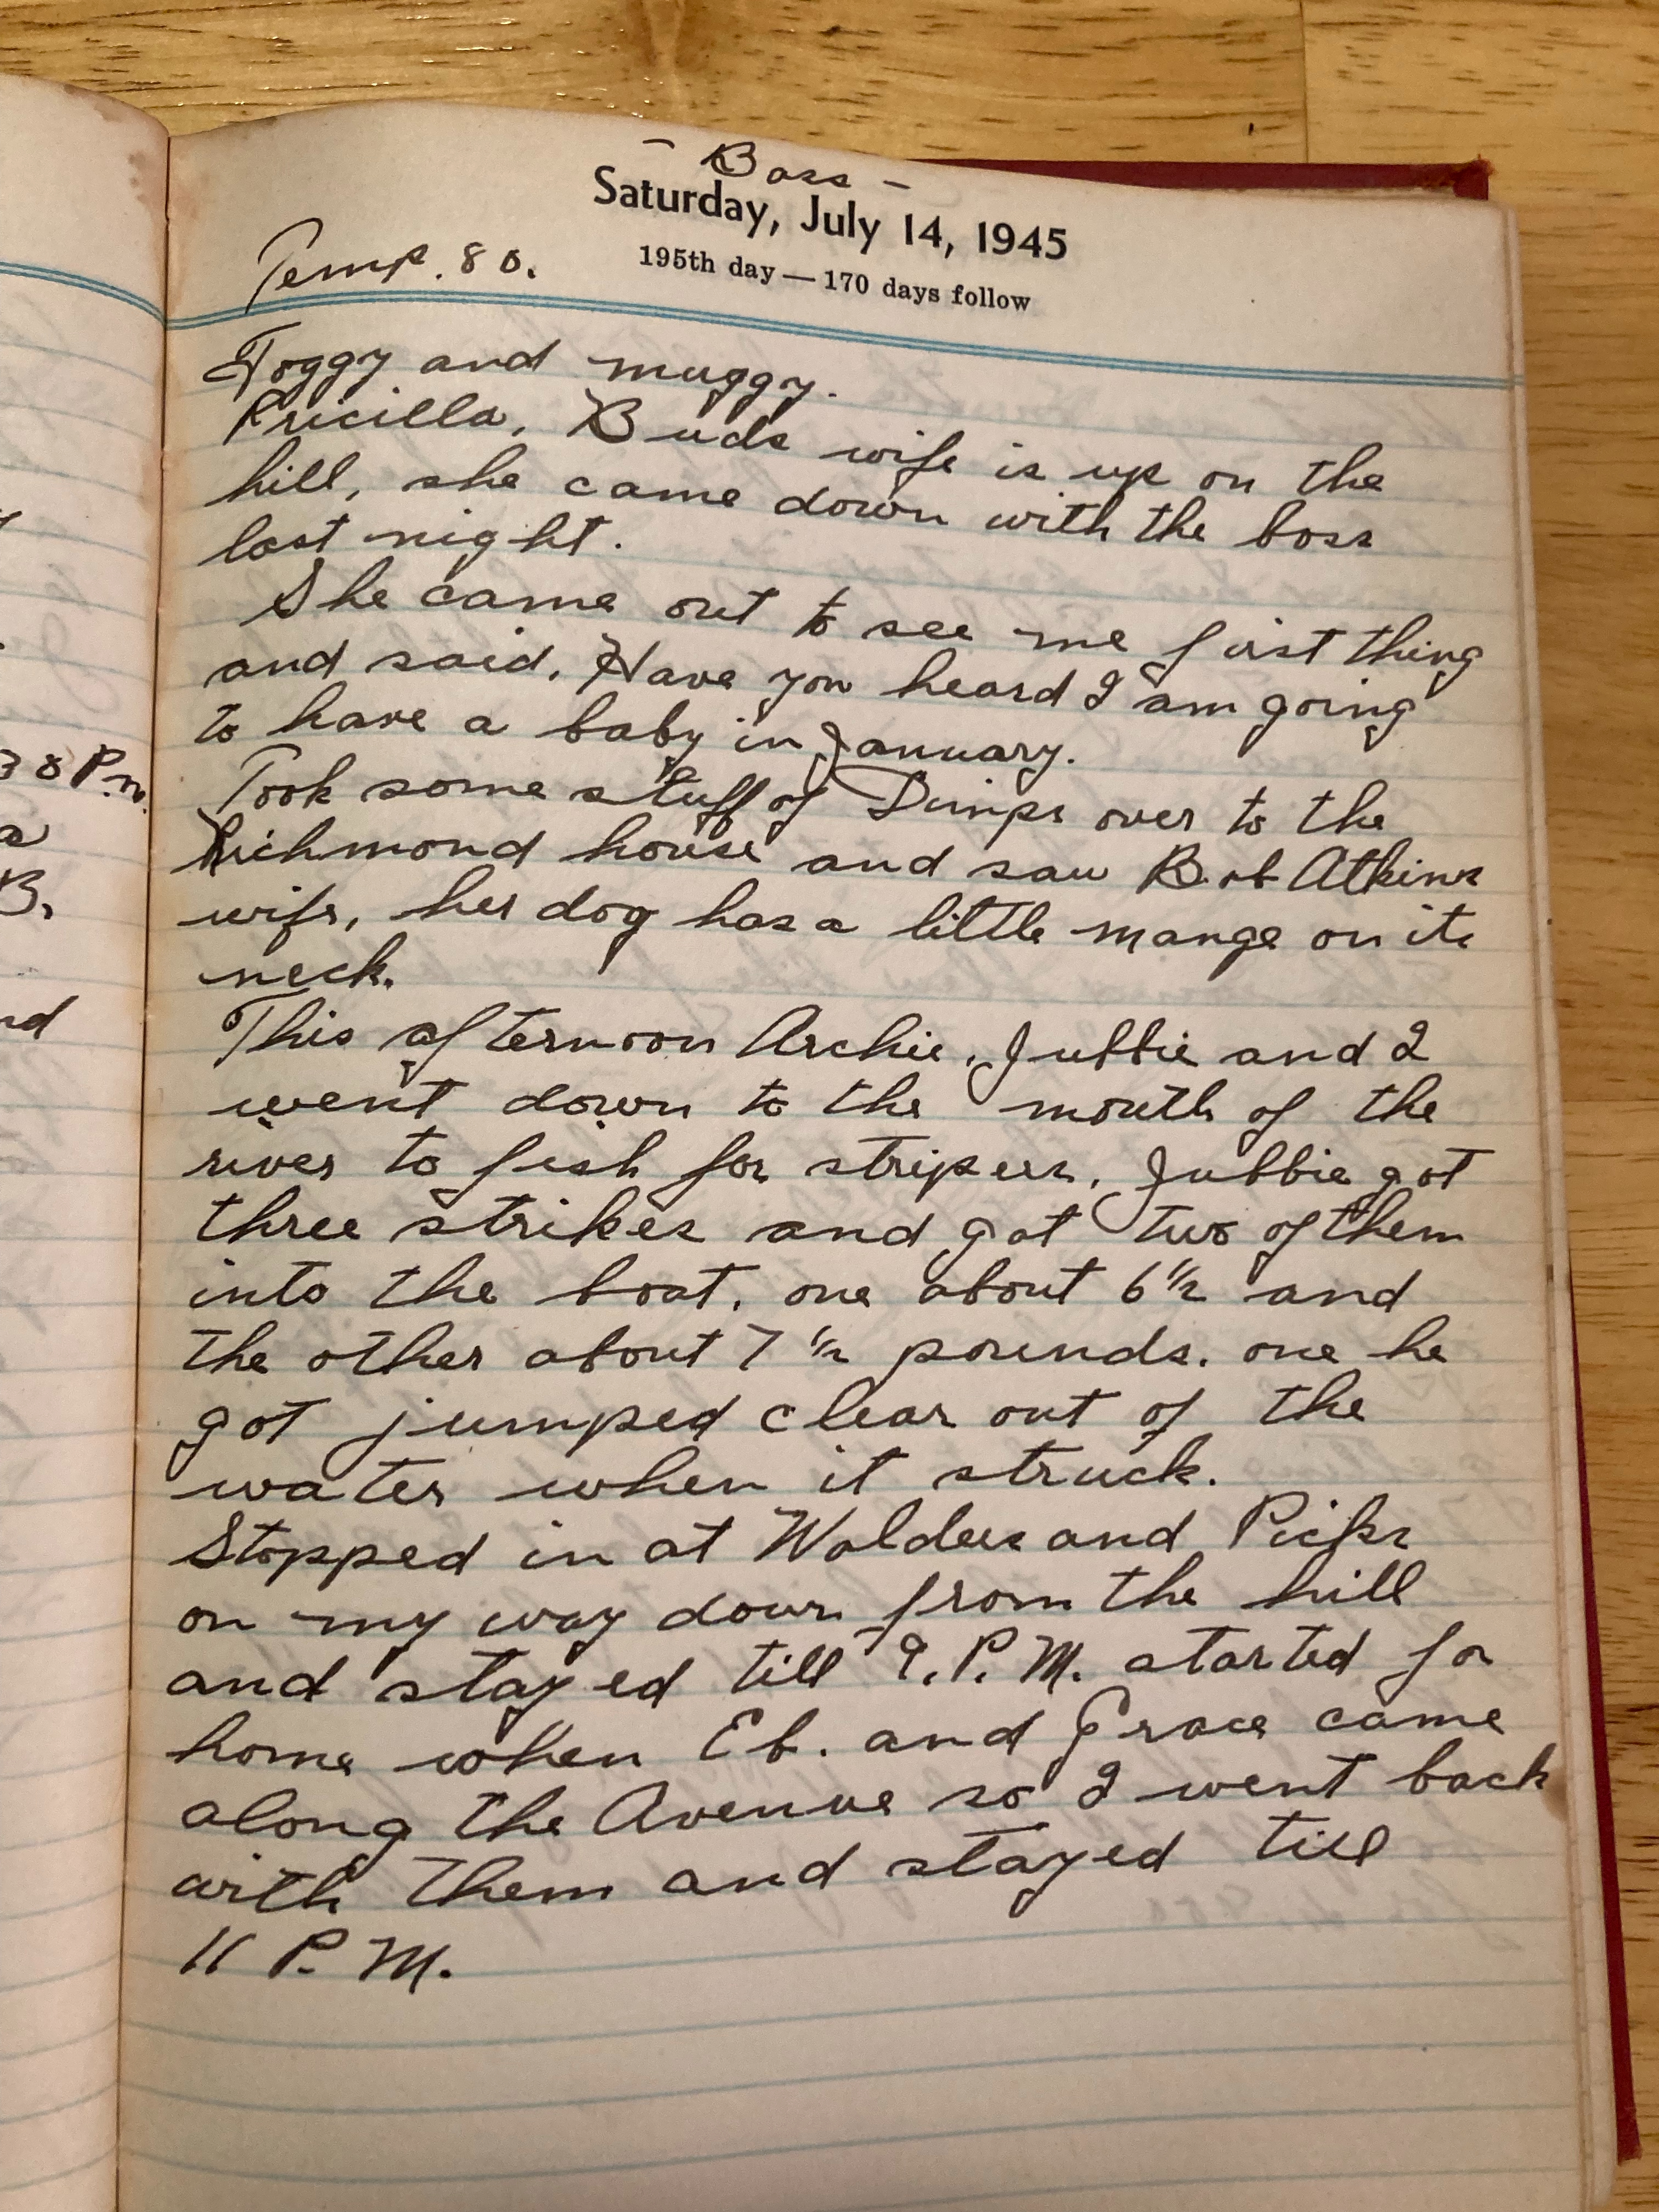 - Boss -
Saturday, July 14, 1945
Temp. 80.
195th day — 170 days follow
Foggy and muggy.
Pricilla, Buds wife is up on the
hill, she came down with the boss
last night.
She came out to see me first thing
and said, Have you heard I am going
to have a baby in January.
Took some stuff of Dimps over to the
Richmond house and saw Bob Atkins
wife, her dog has a little mange on its
neck.
This afternoon Archie, Jubbie and I
went down to the mouth of the
river to fish for stripers, Jubbie got
three strikes and got two of them
into the boat, one about 6 1/2 and
the other about 7 1/2 pounds. one he
got jumped clear out of the
water when it struck.
Stopped in at and
on my way down from the hill
and stayed till 9. P. M. started for
home when Eb. and Grace came
along the Avenue so I went back
with them and stayed till
11 P. M.
30 P.m.
B.